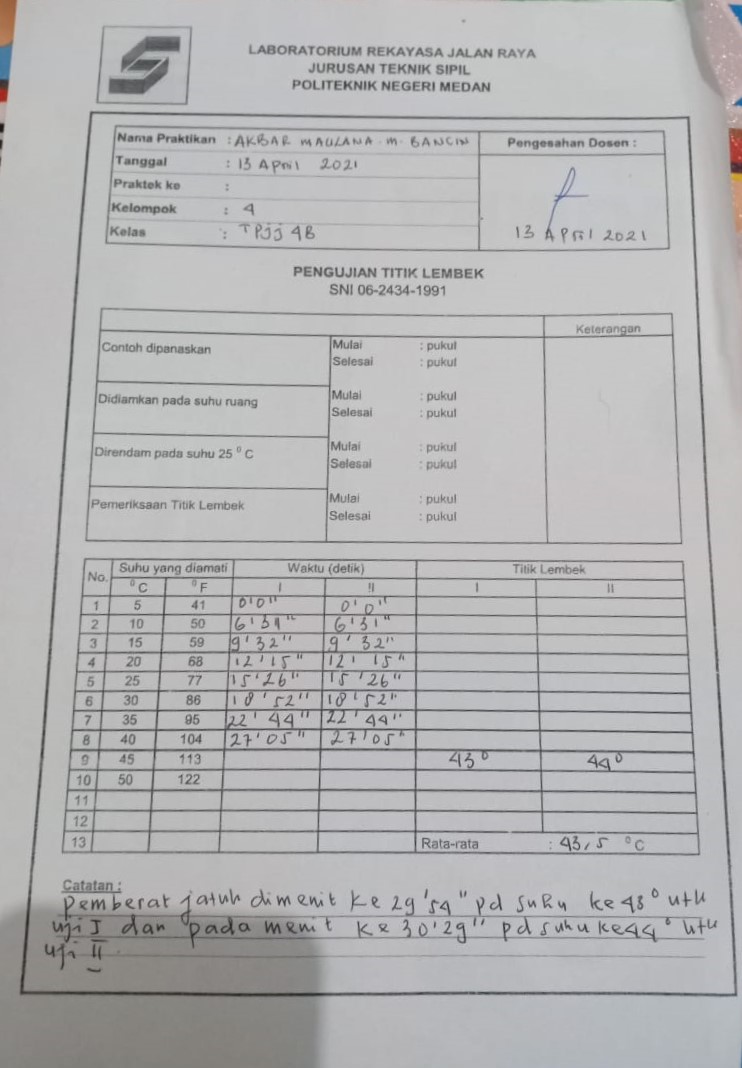 LABORATORIUM REKAYASA JALAN RAYA
JURUSAN TEKNIK SIPIL
POLITEKNIK NEGERI MEDAN
Nama Praktikan : AKBAR MAULANA . M . BANCIN
Pengesahan Dosen :
Tanggal : 13 April 2021
Praktek ke :
Kelompok : 4
Kelas : TPjj 4B
13 April 2021
PENGUJIAN TITIK LEMBEK
SNI 06-2434-1991
Keterangan
Contoh dipanaskan Mulai : pukul
Selesai : pukul
Didiamkan pada suhu ruang Mulai : pukul
Selesai : pukul
Direndam pada suhu 25 °C Mulai : pukul
Selesai : pukul
Pemeriksaan Titik Lembek Mulai : pukul
Selesai : pukul
No. Suhu yang diamati Waktu (detik) Titik Lembek
°C °F I II I II
1 5 41 0'0" 0'0"
2 10 50 6'31" 6'31"
3 15 59 9'32" 9'32"
4 20 68 12'15" 12'15"
5 25 77 15'26" 15'26"
6 30 86 18'52" 18'52"
7 35 95 22'44" 22'44"
8 40 104 27'05" 27'05"
9 45 113 43° 44°
10 50 122
11
12
13 Rata-rata : 43,5 °C
Catatan :
Pemberat jatuh dimenit ke 29'54" pd suhu ke 43° utk
uji I dan pada menit ke 30'29" pd suhu ke 44° utk
uji II